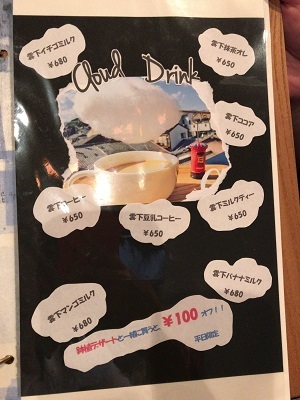 Cloud Drink
雲下イチゴミルク
¥680
雲下抹茶オレ
¥650
雲下ココア
¥650
雲下コーヒー
¥650
雲下豆乳コーヒー
¥650
雲下ミルクティー
¥650
雲下マンゴミルク
¥680
雲下バナナミルク
¥680
鉢植デザートと一緒に買うと ¥100 オフ！！
平日限定